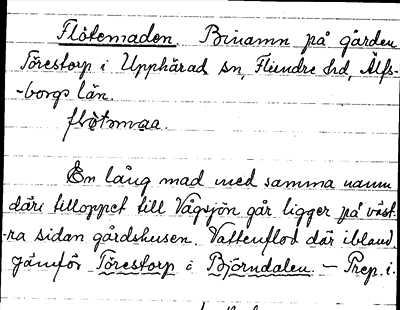 Flötemaden. Binamn på gården
Torestorp i Upphärad sn, Flundre hd, Älfs-
-borgs län.
flötəmaa.
En lång mad med samma namn
däri tilloppet till Vågsjön går ligger på väst-
-ra sidan gårdshusen. Vattenflod där ibland.
Jämför Torestorp i Björndalen. — Prep. i.